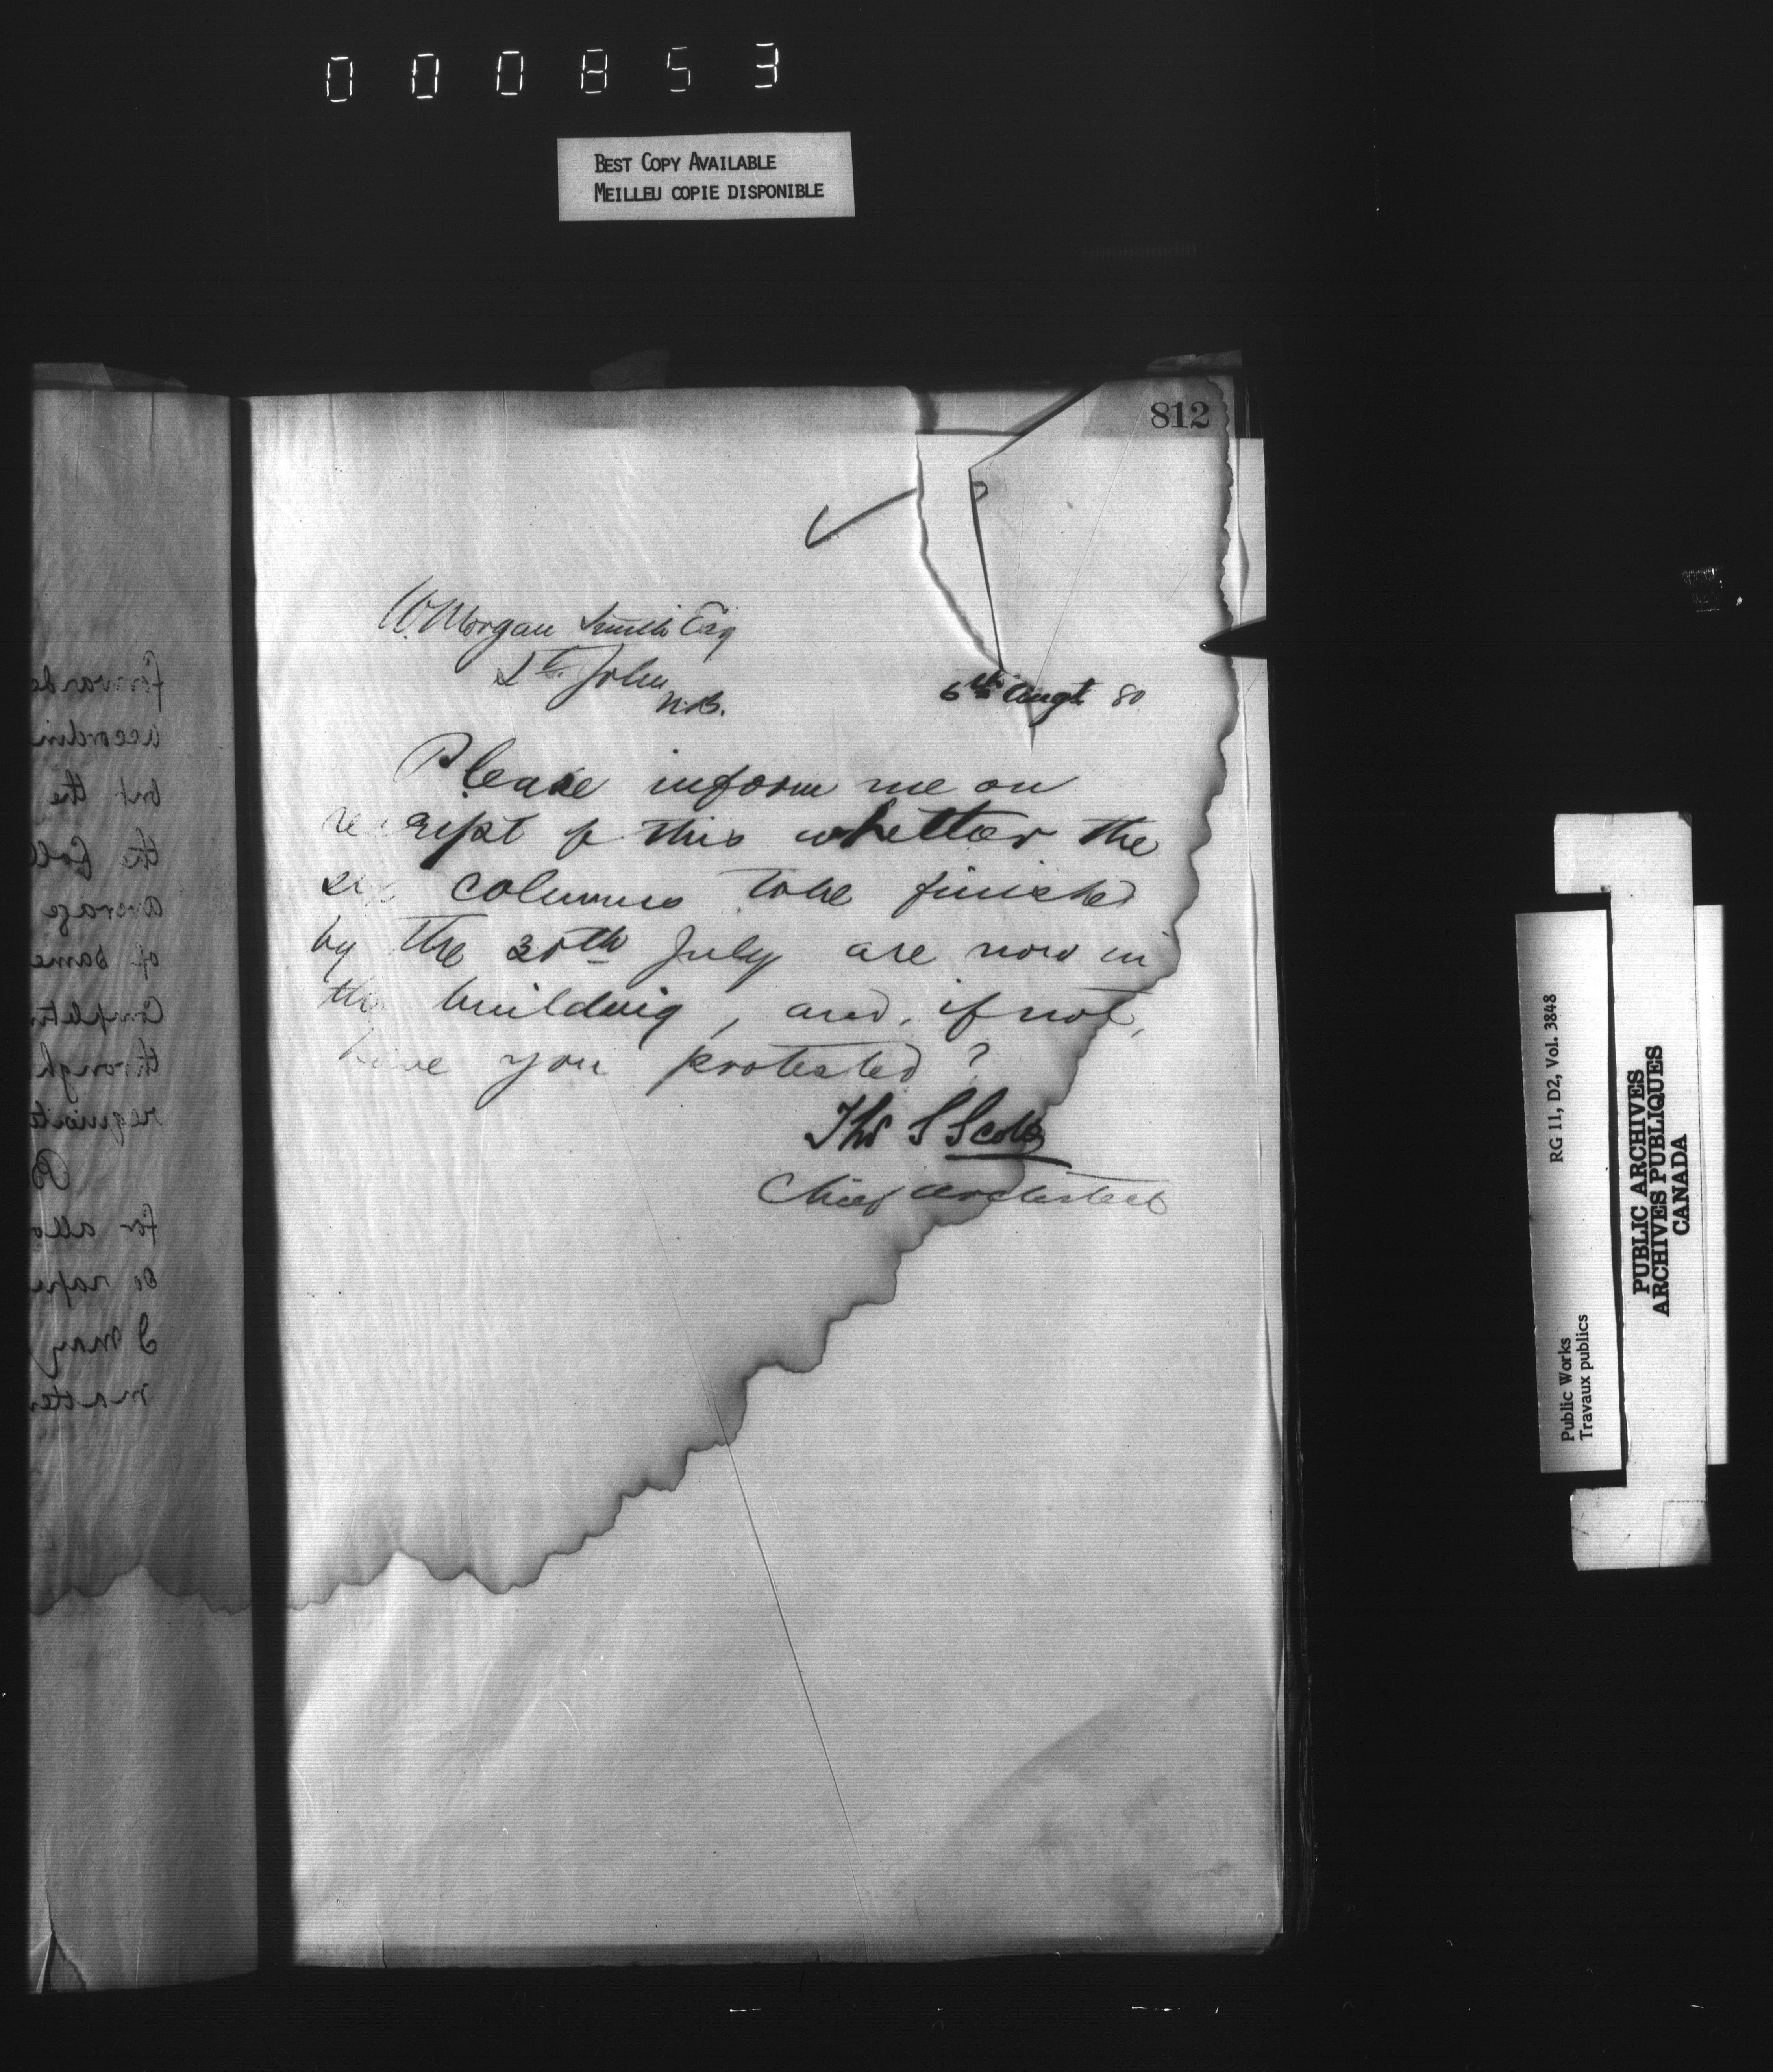 000853
BEST COPY AVAILABLE
MEILLEU COPIE DISPONIBLE
812
W. Morgan Smith Esq
St. John
N.B.
6th Augt 80
Please inform me on
receipt of this whether the
six columns to be finished
by the 30th July are now in
the building, and, if not,
have you protested?
Thos S Scott
Chief Architect
forwarde
accordin
but the
the
average
of same
Complet
through
requisite
for allo
so rapi
I may
matter
RG 11, D2, Vol. 3848
Public Works
Travaux publics
PUBLIC ARCHIVES
ARCHIVES PUBLIQUES
CANADA